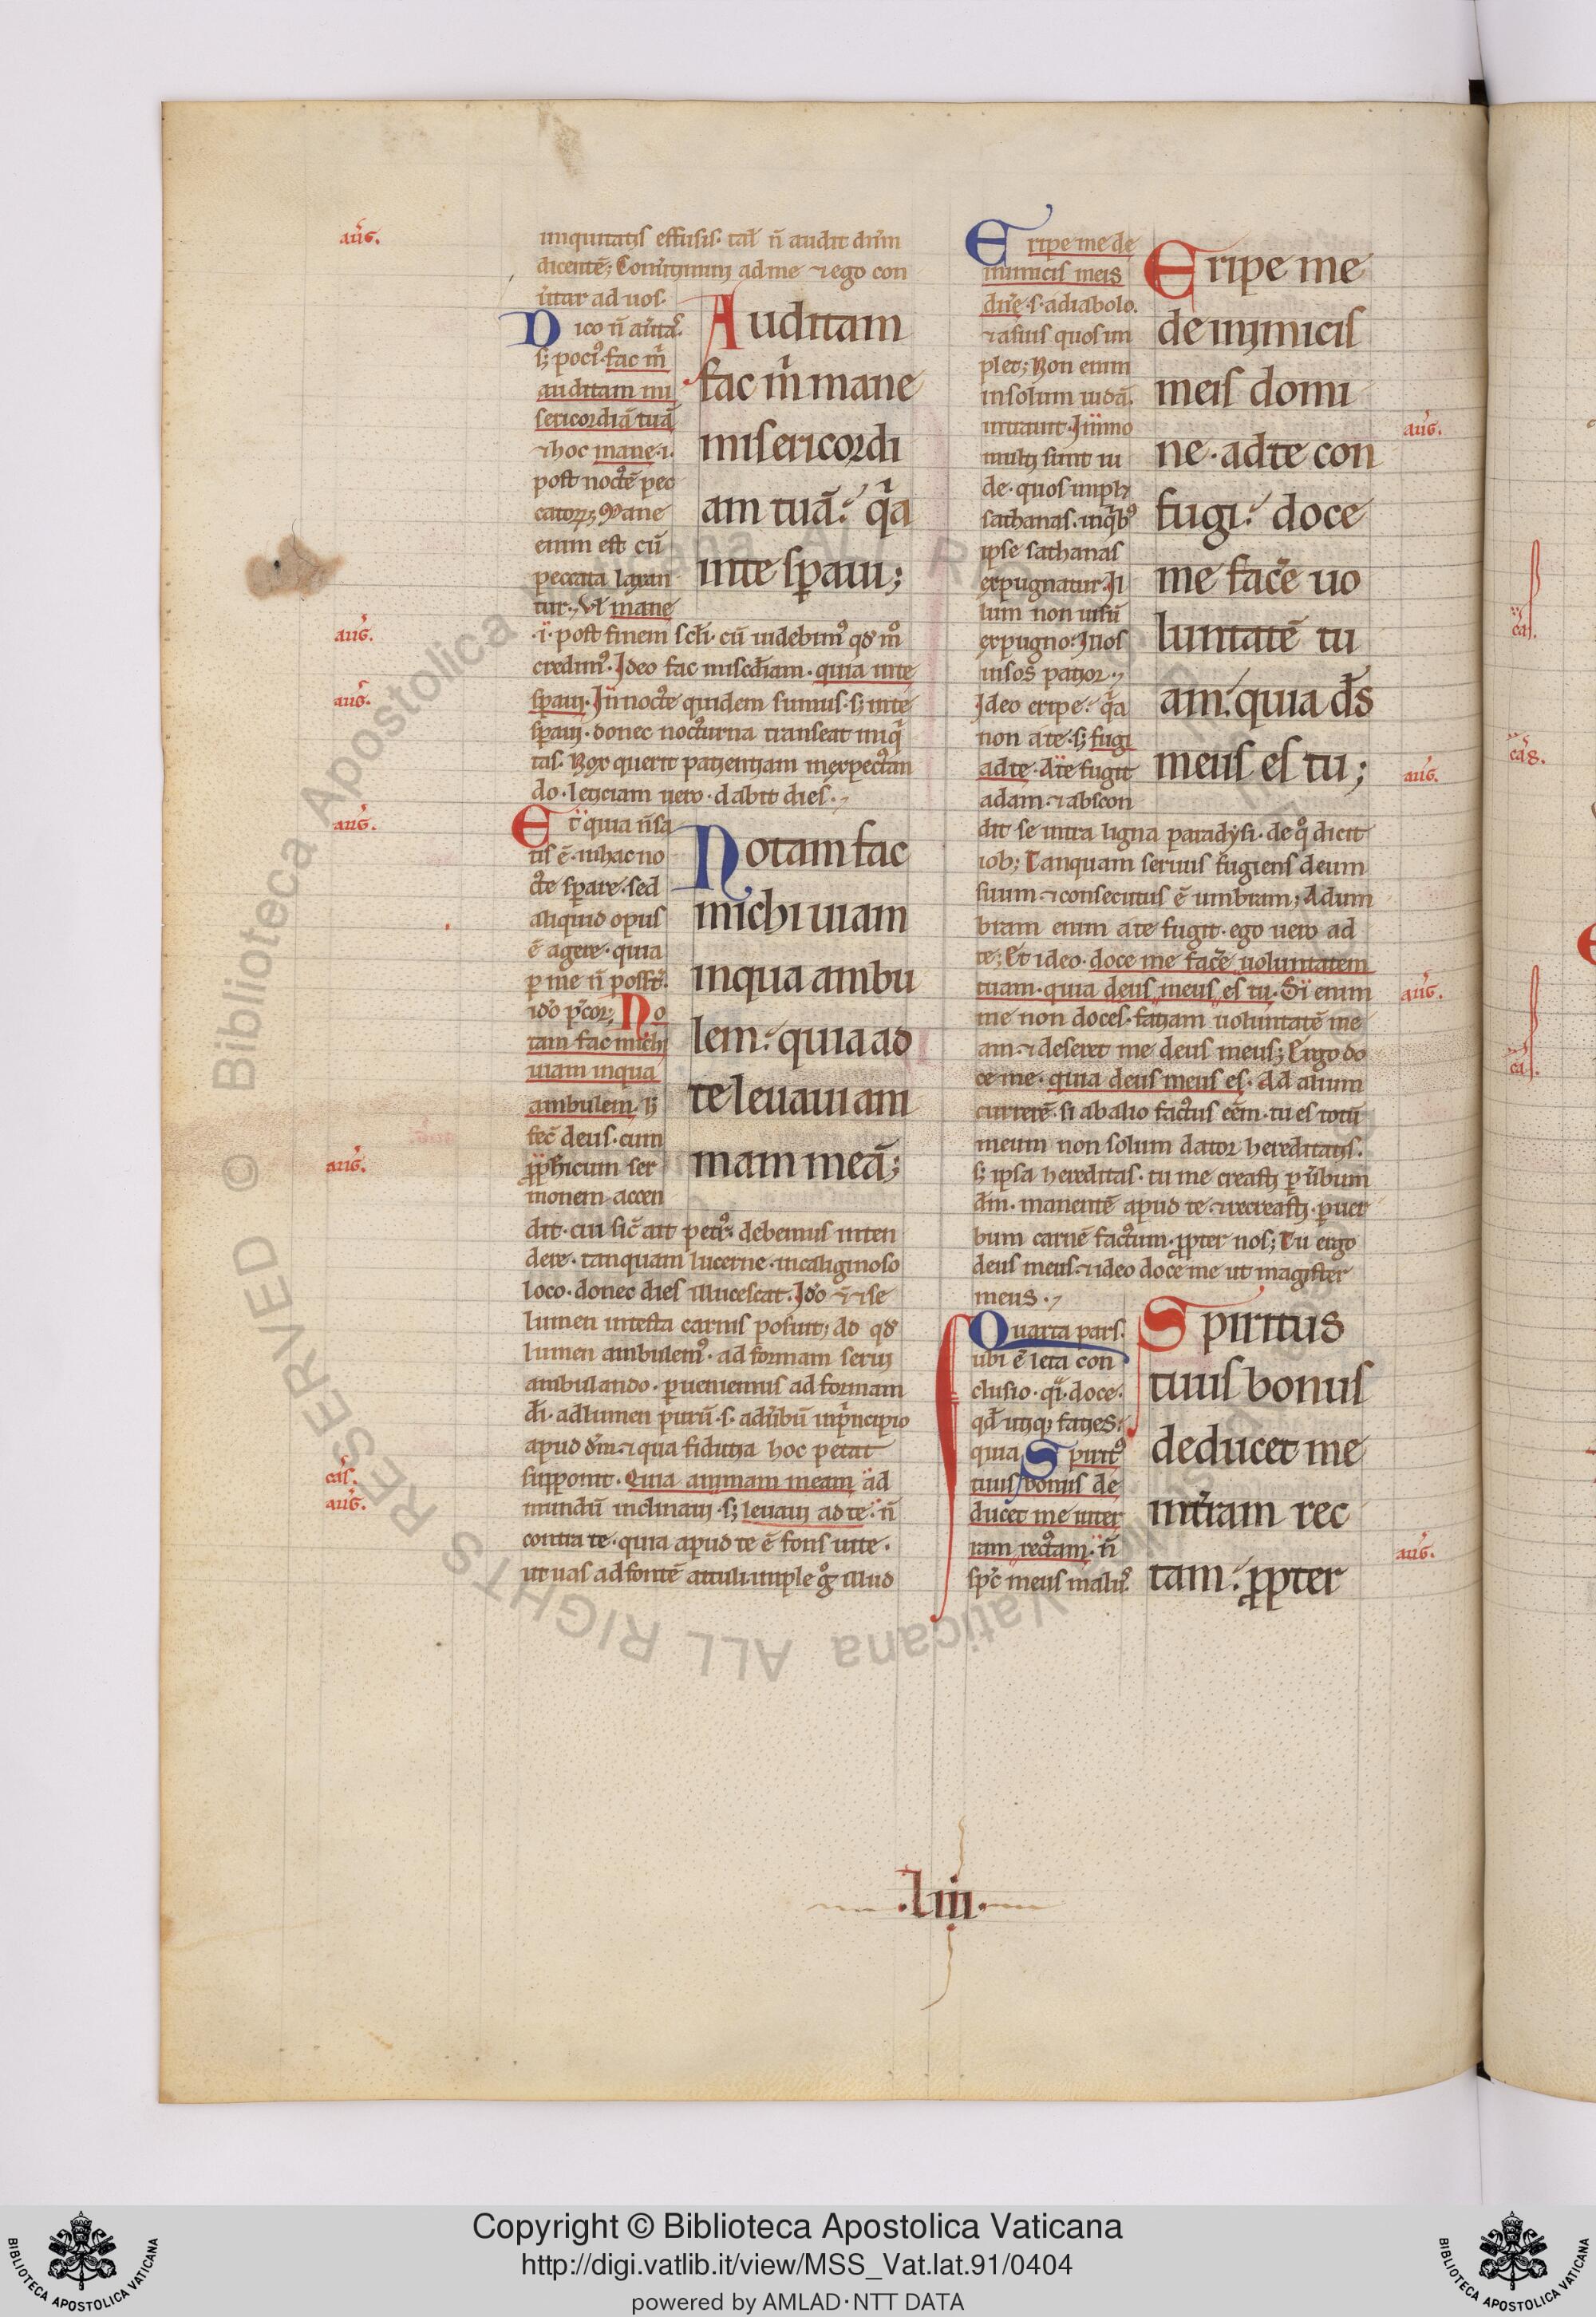 iniquitatis effusis. tal̄ n̄ audit dn̄m
dicentē; Conūtimini ad me ⁊ ego con
ūtar ad uos.
Dico n̄ aūtat᷑
s; poci᷒. fac m̄
auditam mi
sericordiā tuā
⁊ hoc mane .i.
post noctē pec
catoꝝ; Mane
enim est cū
peccata laxan
tur. Vl̓ mane
.i. post finem scl̄i. cū uidebim᷒ qd̓ m̊
credim᷒. Ideo fac misc̄diam. quia in te
sperauj. In nocte quidem sumus. s; in te
sperauj. donec nocturna transeat iniq̓
tas. Nox querit patientiam in expectan
do. letitiam uero. dabit dies.
Auditam
fac m̓ mane
misericordi
am tuā: q̓a
in te speraui;
Et quia n̄ sa
tis ē. in hac no
cte sperare. sed
aliquid opus
ē agere. quia
per me n̄ possū.
id̓o p̄cor; No
tam fac michi
uiam in qua
ambulem. h̓
fec̄ deus. cum
ꝓph̄icum ser
monem accen
dit. cui sic̄ ait petr᷒. debemus inten
dere. tanquam lucerne. in caliginoso
loco. donec dies illucescat. Id̓o ⁊ se
lumen in testa carnis posuit; ad qd̓
lumen ambulem᷒. ad formam serui
ambulando. perueniemus ad formam
dī. ad lumen purū. s. ad ūbū in p̓ncipio
apud dm̄. ⁊ qua fiducia hoc petat
supponit. Quia animam meam ad
mundū inclinaui. s; leuaui ad te. n̄
contra te. quia apud te ē fons uite.
ut uas ad fontē attuli. imple g̊ illud
Notam fac
michi uiam
in qua ambu
lem: quia ad
te leuaui ani
mam meā;
Eripe me de
inimicis meis
dn̄e. s. a diabolo.
⁊ a suis quos im
plet; Non enim
in solum iudā.
intrauit. Immo
multi sunt iu
de. quos implet
sathanas. in q̓b᷒
ipse sathanas
expugnatur. Il
lum non uisū
expugno: In uos
uisos patior.
Ideo eripe. q̓a
non a te. s; fugi
ad te. A te fugit
adam. ⁊ abscon
dit se intra ligna paradysi. de q̊ dicit
iob; Tanquam seruus fugiens deum
suum. ⁊ consecutus ē umbram; Ad um
bram enim a te fugit. ego uero ad
te; Et ideo. doce me facē uoluntatem
tuam. quia deus meus es tu. Si enim
me non doces. faciam uoluntatē me
am. ⁊ deseret me deus meus; Ergo do
ce me. quia deus meus es. Ad alium
currerē. si ab alio factus eēm. tu es totū
meum non solum dator hereditatis.
s; ipsa hereditas. tu me creasti per ūbum
dm̄. manentē apud te. ⁊ recreasti. per uer
bum carnē factum. ꝓpter nos; Tu ergo
deus meus. ⁊ ideo doce me ut magister
meus.
Eripe me
de inimicis
meis domi
ne. ad te con
fugi: doce
me facē uo
luntatē tu
am. quia ds̄
meus es tu;
Quarta pars.
ubi ē leta con
clusio. q̓. doce.
qd̄ utiq; facies.
quia Spirit᷒
tuus bonus de
ducet me in ter
ram rectam. n̄
spc̄ meus malus.
Spiritus
tuus bonus
deducet me
in tr̄am rec
tam: ꝓpter
aug.
aug.
aug.
aug.
aug.
cas.
aug.
aug.
aug.
aug.
aug.
.liii.
cas.
cas.
ca.
© Biblioteca Apostolica Vaticana ALL RIGHTS RESERVED
Copyright © Biblioteca Apostolica Vaticana
http://digi.vatlib.it/view/MSS_Vat.lat.91/0404
powered by AMLAD·NTT DATA
BIBLIOTECA APOSTOLICA VATICANA
BIBLIOTECA APOSTOLICA VATICANA